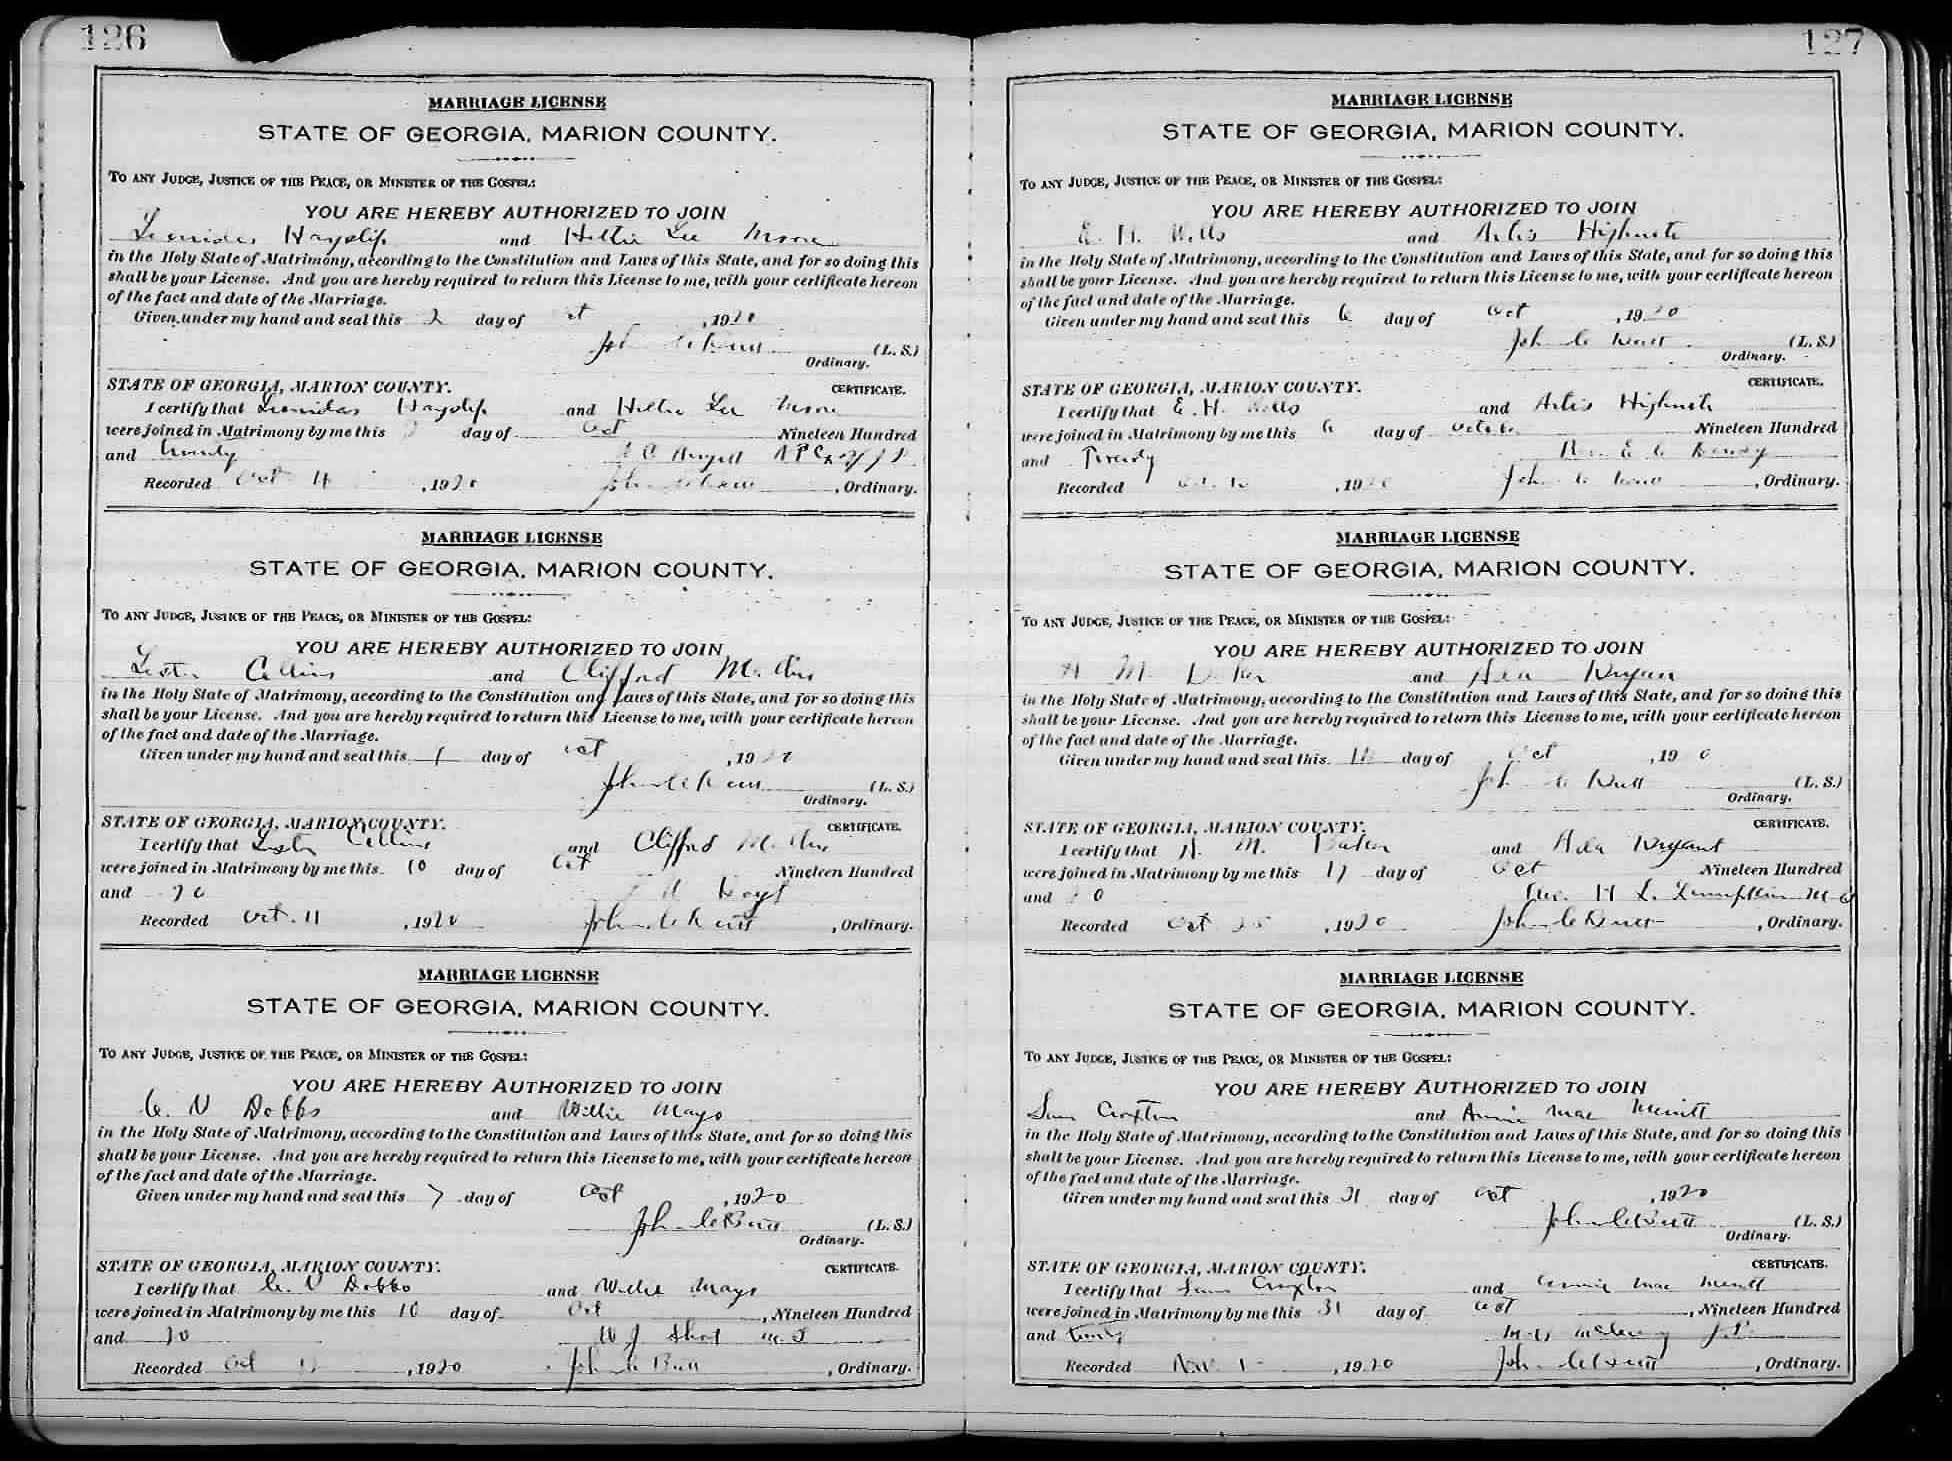 126
MARRIAGE LICENSE
STATE OF GEORGIA, MARION COUNTY.
TO ANY JUDGE, JUSTICE OF THE PEACE, OR MINISTER OF THE GOSPEL:
YOU ARE HEREBY AUTHORIZED TO JOIN
Leonidas Hayslip and Hettie Lee Moore
in the Holy State of Matrimony, according to the Constitution and Laws of this State, and for so doing this
shall be your License. And you are hereby required to return this License to me, with your certificate hereon
of the fact and date of the Marriage.
Given under my hand and seal this 2 day of Oct , 1920
John C Butt (L. S.)
Ordinary.
STATE OF GEORGIA, MARION COUNTY. CERTIFICATE.
I certify that Leonidas Hayslip and Hettie Lee Moore
were joined in Matrimony by me this day of Oct Nineteen Hundred
and twenty
Recorded Oct 4 , 1920 John C Butt , Ordinary.
MARRIAGE LICENSE
STATE OF GEORGIA, MARION COUNTY.
TO ANY JUDGE, JUSTICE OF THE PEACE, OR MINISTER OF THE GOSPEL:
YOU ARE HEREBY AUTHORIZED TO JOIN
Lester Collins and Clifford
in the Holy State of Matrimony, according to the Constitution and Laws of this State, and for so doing this
shall be your License. And you are hereby required to return this License to me, with your certificate hereon
of the fact and date of the Marriage.
Given under my hand and seal this day of Oct , 1920
John C Butt (L. S.)
Ordinary.
STATE OF GEORGIA, MARION COUNTY. CERTIFICATE.
I certify that Lester Collins and Clifford
were joined in Matrimony by me this 10 day of Oct Nineteen Hundred
and 20
Recorded Oct. 11 , 1920 John C Butt , Ordinary.
MARRIAGE LICENSE
STATE OF GEORGIA, MARION COUNTY.
TO ANY JUDGE, JUSTICE OF THE PEACE, OR MINISTER OF THE GOSPEL:
YOU ARE HEREBY AUTHORIZED TO JOIN
C. V Dobbs and Willie Mays
in the Holy State of Matrimony, according to the Constitution and Laws of this State, and for so doing this
shall be your License. And you are hereby required to return this License to me, with your certificate hereon
of the fact and date of the Marriage.
Given under my hand and seal this 7 day of Oct , 1920
John C Butt (L. S.)
Ordinary.
STATE OF GEORGIA, MARION COUNTY. CERTIFICATE.
I certify that C. V Dobbs and Willie Mays
were joined in Matrimony by me this 10 day of Oct , Nineteen Hundred
and 20 W J Short
Recorded Oct , 1920 John C Butt , Ordinary.
127
MARRIAGE LICENSE
STATE OF GEORGIA, MARION COUNTY.
TO ANY JUDGE, JUSTICE OF THE PEACE, OR MINISTER OF THE GOSPEL:
YOU ARE HEREBY AUTHORIZED TO JOIN
E. H. Wells and Artis Highnote
in the Holy State of Matrimony, according to the Constitution and Laws of this State, and for so doing this
shall be your License. And you are hereby required to return this License to me, with your certificate hereon
of the fact and date of the Marriage.
Given under my hand and seal this 6 day of Oct , 1920
John C Butt (L. S.)
Ordinary.
STATE OF GEORGIA, MARION COUNTY. CERTIFICATE.
I certify that E. H. Wells and Artis Highnote
were joined in Matrimony by me this 6 day of October Nineteen Hundred
and Twenty
Recorded , 1920 John C Butt , Ordinary.
MARRIAGE LICENSE
STATE OF GEORGIA, MARION COUNTY.
TO ANY JUDGE, JUSTICE OF THE PEACE, OR MINISTER OF THE GOSPEL:
YOU ARE HEREBY AUTHORIZED TO JOIN
M. and Ada Bryan
in the Holy State of Matrimony, according to the Constitution and Laws of this State, and for so doing this
shall be your License. And you are hereby required to return this License to me, with your certificate hereon
of the fact and date of the Marriage.
Given under my hand and seal this day of Oct , 1920
John C Butt (L. S.)
Ordinary.
STATE OF GEORGIA, MARION COUNTY. CERTIFICATE.
I certify that M. and Ada Bryant
were joined in Matrimony by me this 17 day of Oct Nineteen Hundred
and 20 H L Lumpkin M G
Recorded Oct 25 , 1920 John C Butt , Ordinary.
MARRIAGE LICENSE
STATE OF GEORGIA, MARION COUNTY.
TO ANY JUDGE, JUSTICE OF THE PEACE, OR MINISTER OF THE GOSPEL:
YOU ARE HEREBY AUTHORIZED TO JOIN
Sam Croxton and Annie Mae Merritt
in the Holy State of Matrimony, according to the Constitution and Laws of this State, and for so doing this
shall be your License. And you are hereby required to return this License to me, with your certificate hereon
of the fact and date of the Marriage.
Given under my hand and seal this 31 day of Oct , 1920
John C Butt (L. S.)
Ordinary.
STATE OF GEORGIA, MARION COUNTY. CERTIFICATE.
I certify that Sam Croxton and Annie Mae Merritt
were joined in Matrimony by me this 31 day of Oct , Nineteen Hundred
and twenty J.P.
Recorded Nov. 1 , 1920 John C Butt , Ordinary.